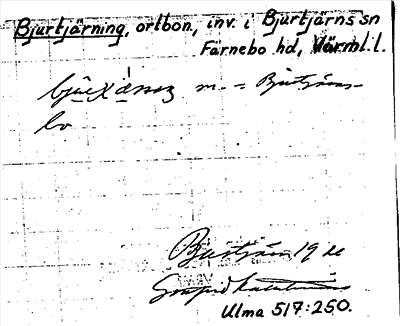 Bjurtjärning, ortbon, inv. i Bjurtjärns sn
Färnebo hd, Värml.l.
m. = Bjurtjärns-
bo
Bjurtjärn 19
Ulma 517:250.